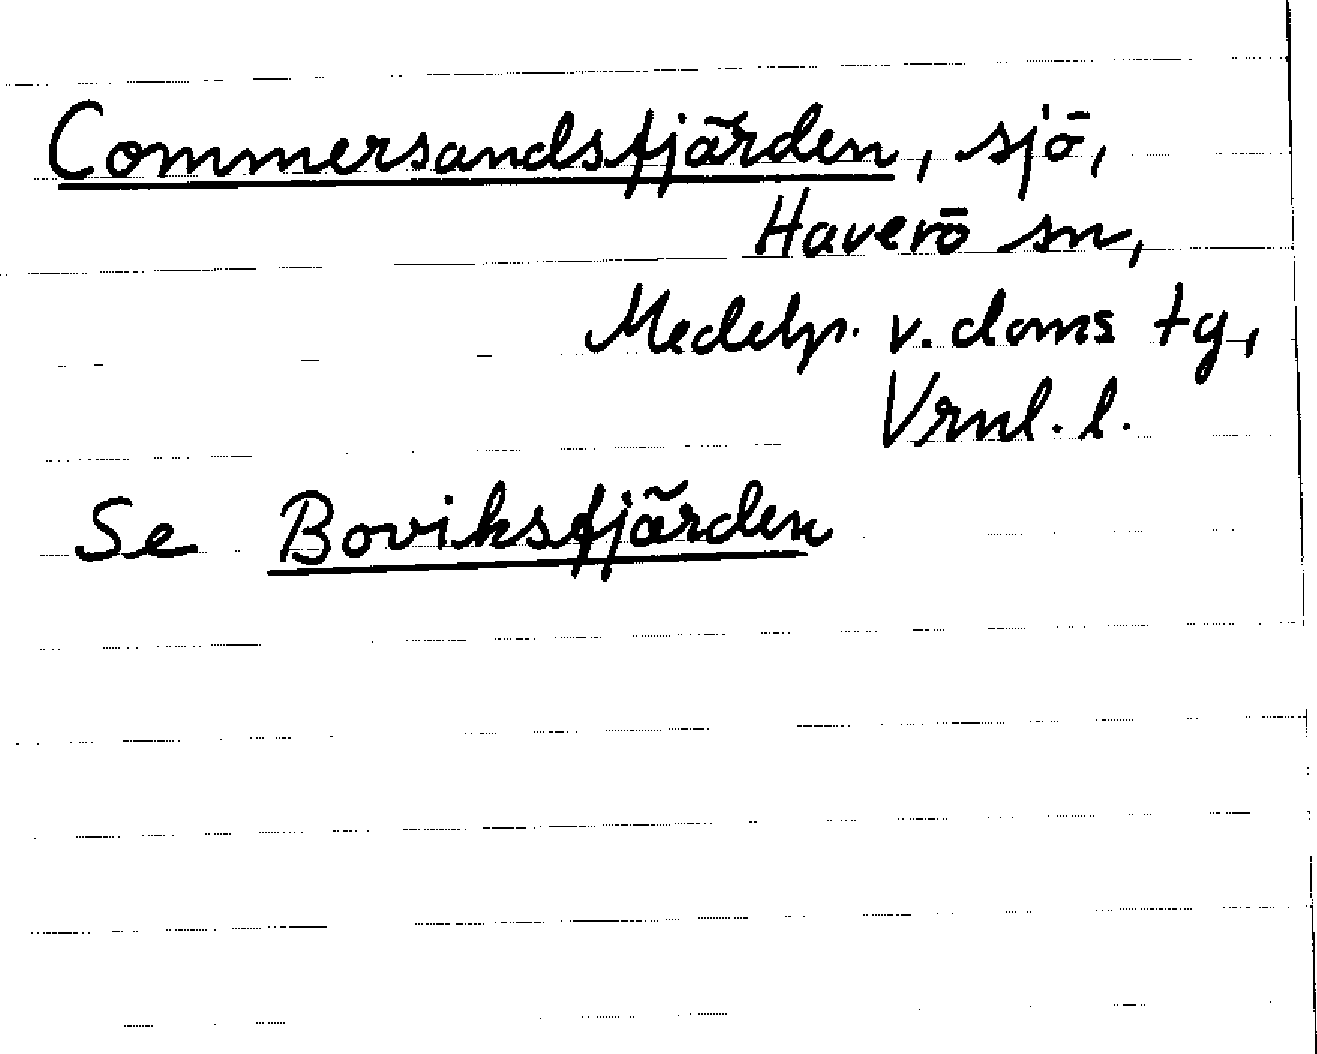 Commersandsfjärden, sjö,
Haverö sn,
Medelp. v. doms tg,
Vrnl. l.
Se Boviksfjärden